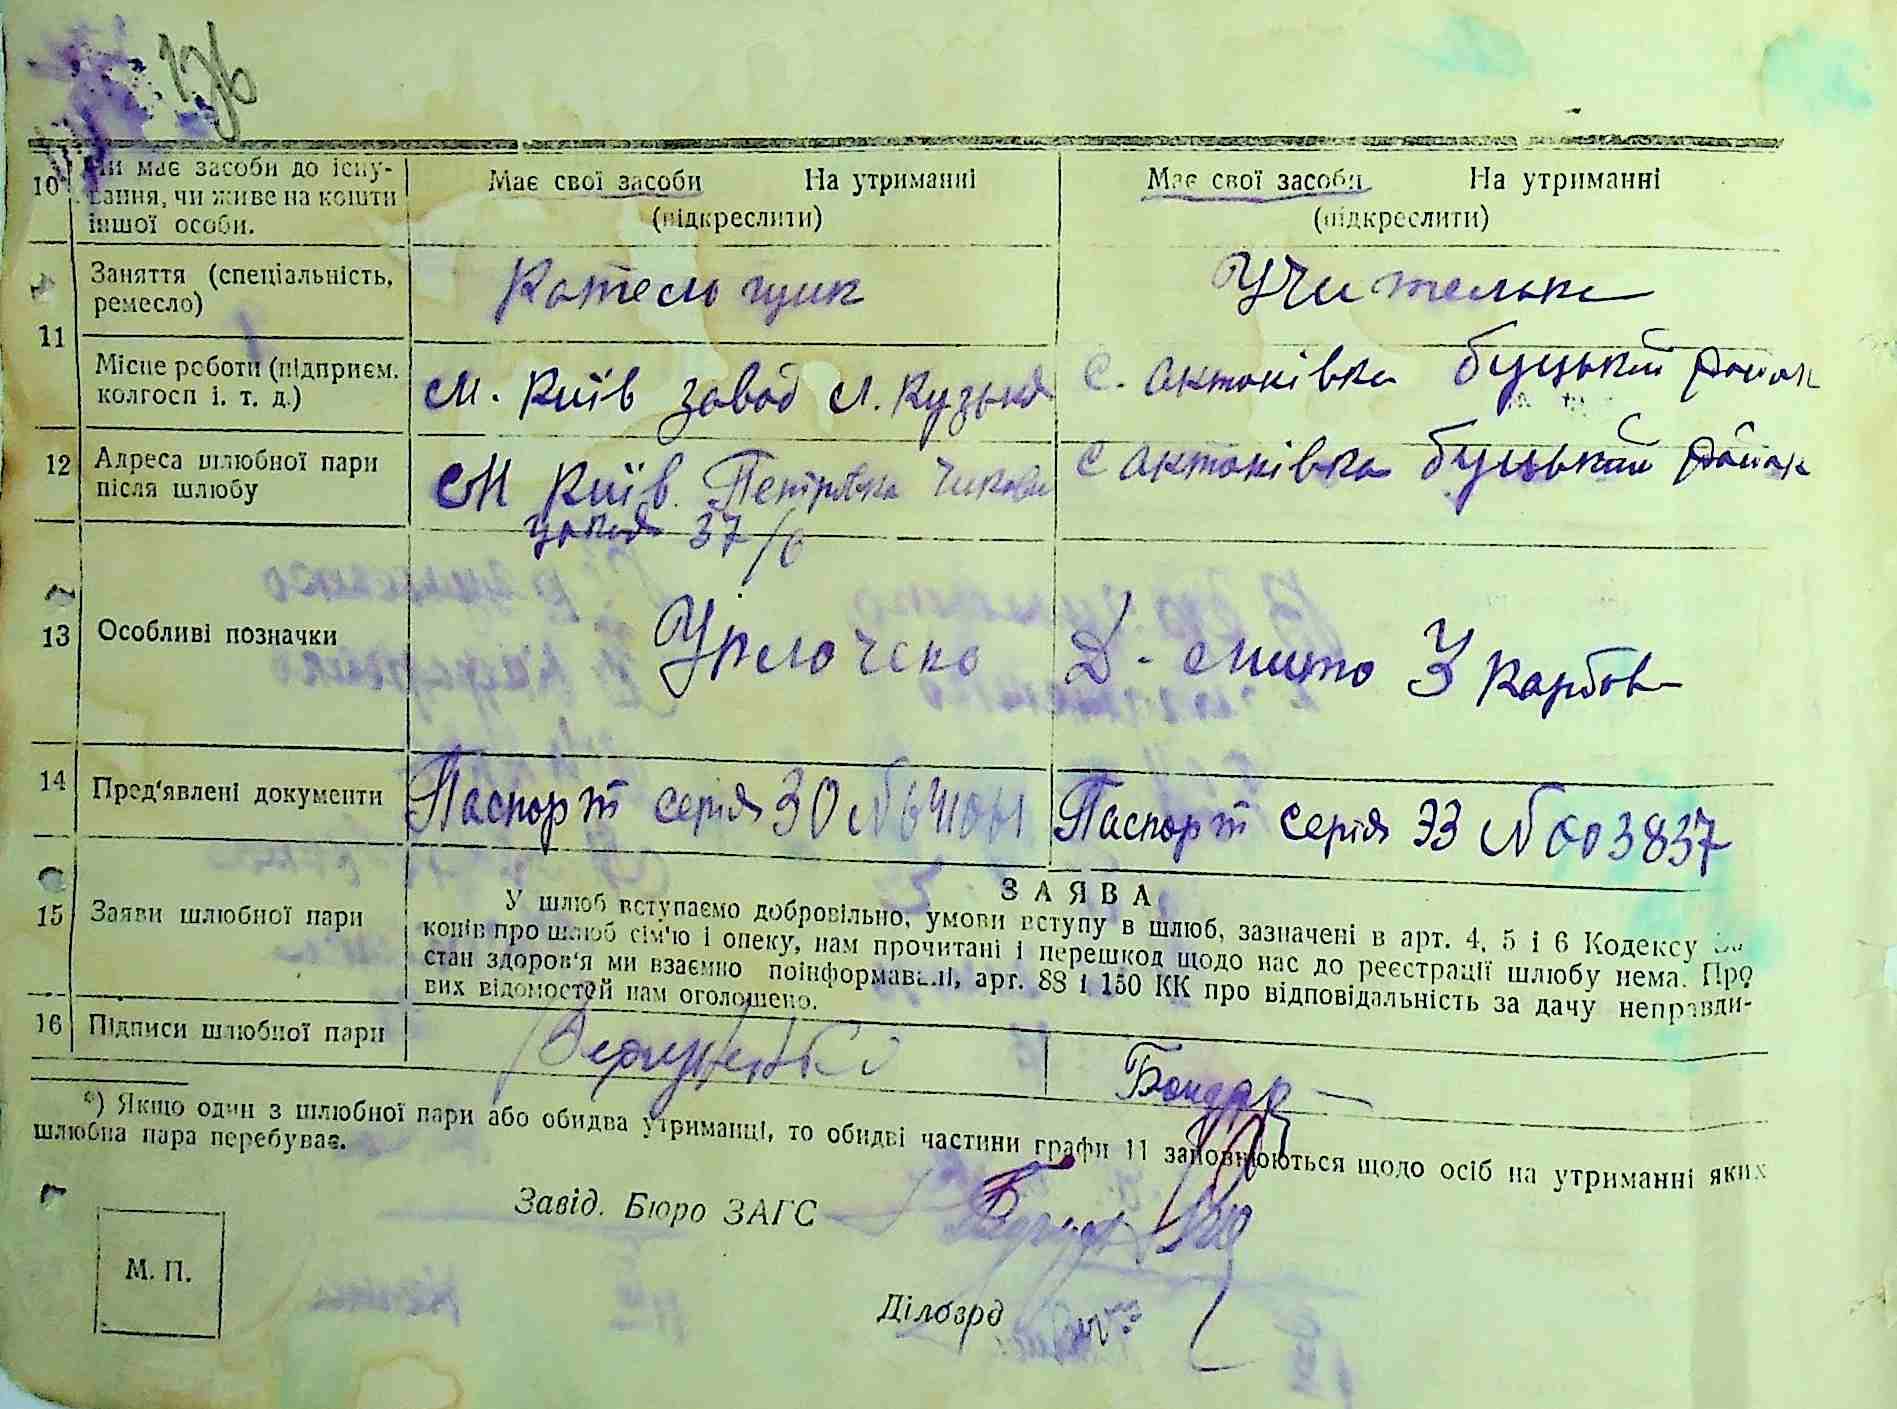 10 Чи має засоби до існу-
вання, чи живе на кошти
іншої особи.
Має свої засоби На утриманні
(підкреслити)
Має свої засоби На утриманні
(підкреслити)
11
Заняття (спеціальність,
ремесло)
Котельщик
Учителька
Місце роботи (підприєм.
колгосп і. т. д.)
м. Київ завод
с. Антонівка буцький район
12 Адреса шлюбної пари
після шлюбу
м Київ Петрівка
37/6
с Антонівка буцький район
13 Особливі позначки
Урлочено
Д- мито 3 карбов
14 Пред'явлені документи
Паспорт серія ЗО №
Паспорт серія ЭЗ № 603837
15 Заяви шлюбної пари
ЗАЯВА
У шлюб вступаємо добровільно, умови вступу в шлюб, зазначені в арт. 4, 5 і 6 Кодексу за-
конів про шлюб сім'ю і опеку, нам прочитані і перешкод щодо нас до реєстрації шлюбу нема. Про
стан здоров'я ми взаємно поінформавалі, арт. 88 і 150 КК про відповідальність за дачу неправди-
вих відомостей нам оголошено.
16 Підписи шлюбної пари
Бондар
*) Якщо один з шлюбної пари або обидва утриманці, то обидві частини графи 11 заповнюються щодо осіб на утриманні яких
шлюбна пара перебуває.
Завід. Бюро ЗАГС
М. П.
Діловод